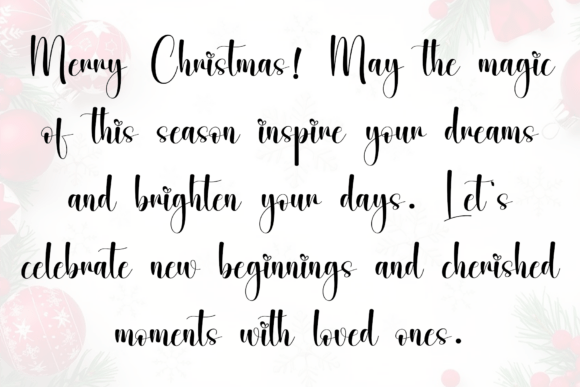 Merry Christmas! May the magic
of this season inspire your dreams
and brighten your days. Let's
celebrate new beginnings and cherished
moments with loved ones.